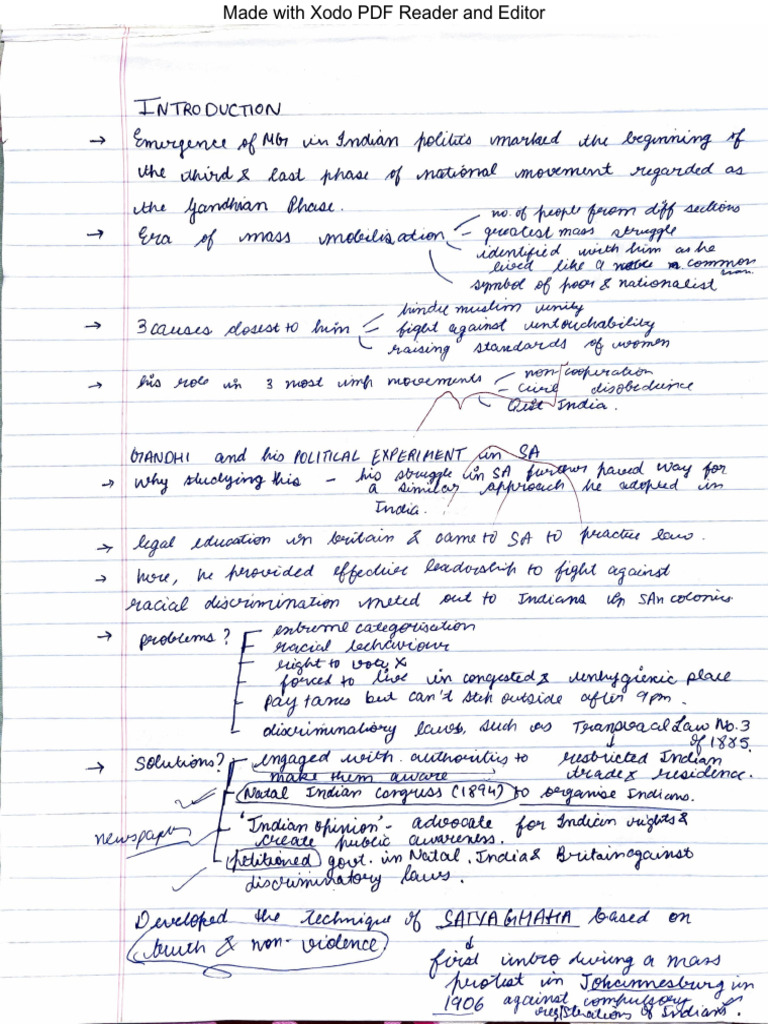 Made with Xodo PDF Reader and Editor
INTRODUCTION
→ Emergence of MG in Indian politics marked the beginning of
the third & last phase of national movement regarded as
the Gandhian Phase.
→ Era of mass mobilisation
no. of people from diff sections
greatest mass struggle
identified with him as he
lived like a common
man
symbol of poor & nationalist
→ 3 causes closest to him
hindu muslim unity
fight against untouchability
raising standards of women
→ his role in 3 most imp movements
non cooperation
civil disobedience
Quit India.
GANDHI and his POLITICAL EXPERIMENT in SA
→ why studying this - his struggle in SA further paved way for
a similar approach he adopted in
India.
→ legal education in britain & came to SA to practice law.
→ here, he provided effective leadership to fight against
racial discrimination meted out to Indians in SAn colonies
→ problems?
extreme categorisation
racial behaviour
right to vote x
forced to live in congested & unhygienic place
pay taxes but can't step outside after 9pm.
discriminatory laws, such as Transvaal Law No. 3
of 1885.
restricted Indian
trade & residence.
→ solutions?
engaged with authorities to
make them aware
Natal Indian Congress (1894) to organise Indians.
newspaper
'Indian Opinion' - advocate for Indian rights &
create public awareness.
petitioned govt. in Natal, India & Britain against
discriminatory laws.
Developed the technique of SATYAGHAHA based on
truth & non-violence
first intro during a mass
protest in Johannesburg in
1906 against compulsory
registrations of Indians.